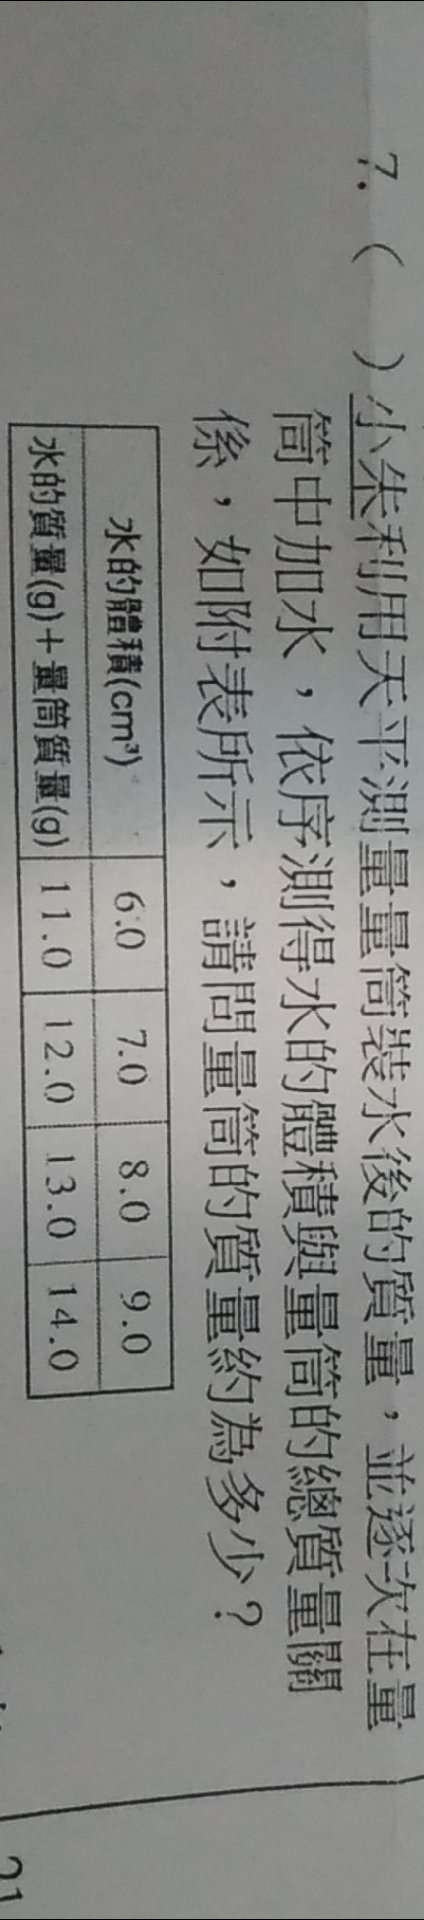 7. (　) 小朱利用天平測量量筒裝水後的質量，並逐次在量
筒中加水，依序測得水的體積與量筒的總質量關
係，如附表所示，請問量筒的質量約為多少？
水的體積(cm³) 6.0 7.0 8.0 9.0
水的質量(g)＋量筒質量(g) 11.0 12.0 13.0 14.0
21